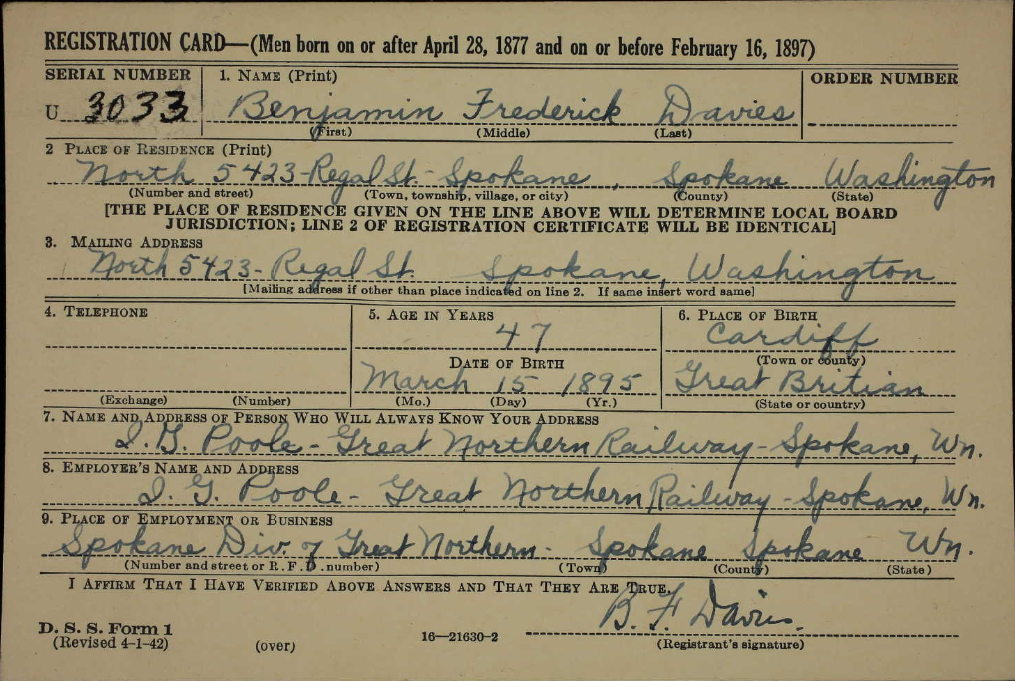 REGISTRATION CARD—(Men born on or after April 28, 1877 and on or before February 16, 1897)
SERIAL NUMBER 1. NAME (Print) ORDER NUMBER
U 3033 Benjamin Frederick Davies
(First) (Middle) (Last)
2 PLACE OF RESIDENCE (Print)
North 5423-Regal St.- Spokane, Spokane Washington
(Number and street) (Town, township, village, or city) (County) (State)
[THE PLACE OF RESIDENCE GIVEN ON THE LINE ABOVE WILL DETERMINE LOCAL BOARD
JURISDICTION; LINE 2 OF REGISTRATION CERTIFICATE WILL BE IDENTICAL]
3. MAILING ADDRESS
North 5423- Regal St. Spokane, Washington
[Mailing address if other than place indicated on line 2. If same insert word same]
4. TELEPHONE 5. AGE IN YEARS 6. PLACE OF BIRTH
47 Cardiff
DATE OF BIRTH (Town or county)
March 15 1895 Great Britian
(Exchange) (Number) (Mo.) (Day) (Yr.) (State or country)
7. NAME AND ADDRESS OF PERSON WHO WILL ALWAYS KNOW YOUR ADDRESS
I. G. Poole - Great Northern Railway - Spokane, Wn.
8. EMPLOYER'S NAME AND ADDRESS
I. G. Poole - Great Northern Railway - Spokane, Wn.
9. PLACE OF EMPLOYMENT OR BUSINESS
Spokane Div. of Great Northern - Spokane Spokane Wn.
(Number and street or R. F. D. number) (Town) (County) (State)
I AFFIRM THAT I HAVE VERIFIED ABOVE ANSWERS AND THAT THEY ARE TRUE.
B. F. Davies.
D. S. S. Form 1
(Revised 4-1-42) (over) 16—21630-2 (Registrant's signature)